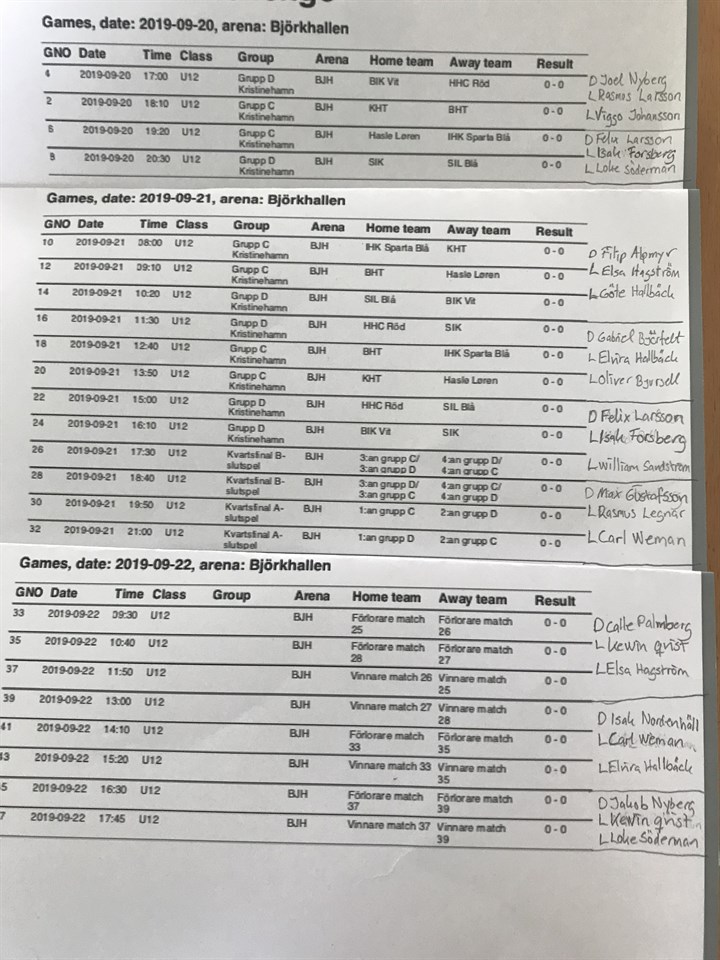 Games, date: 2019-09-20, arena: Björkhallen
GNO Date Time Class Group Arena Home team Away team Result
4 2019-09-20 17:00 U12 Grupp D Kristinehamn BJH BIK Vit HHC Röd 0 - 0
D Joel Nyberg
L Rasmus Larsson
2 2019-09-20 18:10 U12 Grupp C Kristinehamn BJH KHT BHT 0 - 0
L Viggo Johansson
6 2019-09-20 19:20 U12 Grupp C Kristinehamn BJH Hasle Løren IHK Sparta Blå 0 - 0
D Felix Larsson
L Isak Forsberg
8 2019-09-20 20:30 U12 Grupp D Kristinehamn BJH SIK SIL Blå 0 - 0
L Loke Söderman
Games, date: 2019-09-21, arena: Björkhallen
GNO Date Time Class Group Arena Home team Away team Result
10 2019-09-21 08:00 U12 Grupp C Kristinehamn BJH IHK Sparta Blå KHT 0 - 0
D Filip Alpmyr
12 2019-09-21 09:10 U12 Grupp C Kristinehamn BJH BHT Hasle Løren 0 - 0
L Elsa Hagström
14 2019-09-21 10:20 U12 Grupp D Kristinehamn BJH SIL Blå BIK Vit 0 - 0
L Göte Hallbäck
16 2019-09-21 11:30 U12 Grupp D Kristinehamn BJH HHC Röd SIK 0 - 0
D Gabriel
18 2019-09-21 12:40 U12 Grupp C Kristinehamn BJH BHT IHK Sparta Blå 0 - 0
L Elvira Hallbäck
20 2019-09-21 13:50 U12 Grupp C Kristinehamn BJH KHT Hasle Løren 0 - 0
L Oliver Bjursell
22 2019-09-21 15:00 U12 Grupp D Kristinehamn BJH HHC Röd SIL Blå 0 - 0
D Felix Larsson
24 2019-09-21 16:10 U12 Grupp D Kristinehamn BJH BIK Vit SIK 0 - 0
L Isak Forsberg
26 2019-09-21 17:30 U12 Kvartsfinal B-slutspel BJH 3:an grupp C/ 3:an grupp D 4:an grupp D/ 4:an grupp C 0 - 0
L William Sandström
28 2019-09-21 18:40 U12 Kvartsfinal B-slutspel BJH 3:an grupp D/ 3:an grupp C 4:an grupp C/ 4:an grupp D 0 - 0
D Max Gustafsson
30 2019-09-21 19:50 U12 Kvartsfinal A-slutspel BJH 1:an grupp C 2:an grupp D 0 - 0
L Rasmus Legnär
32 2019-09-21 21:00 U12 Kvartsfinal A-slutspel BJH 1:an grupp D 2:an grupp C 0 - 0
L Carl Weman
Games, date: 2019-09-22, arena: Björkhallen
GNO Date Time Class Group Arena Home team Away team Result
33 2019-09-22 09:30 U12 BJH Förlorare match 25 Förlorare match 26 0 - 0
D Calle Palmberg
35 2019-09-22 10:40 U12 BJH Förlorare match 28 Förlorare match 27 0 - 0
L Kewin Qvist
37 2019-09-22 11:50 U12 BJH Vinnare match 26 Vinnare match 25 0 - 0
L Elsa Hagström
39 2019-09-22 13:00 U12 BJH Vinnare match 27 Vinnare match 28 0 - 0
D Isak Nordenhäll
41 2019-09-22 14:10 U12 BJH Förlorare match 33 Förlorare match 35 0 - 0
L Carl Weman
43 2019-09-22 15:20 U12 BJH Vinnare match 33 Vinnare match 35 0 - 0
L Elvira Hallbäck
5 2019-09-22 16:30 U12 BJH Förlorare match 37 Förlorare match 39 0 - 0
D Jakob Nyberg
L Kewin Qvist
7 2019-09-22 17:45 U12 BJH Vinnare match 37 Vinnare match 39 0 - 0
L Loke Söderman